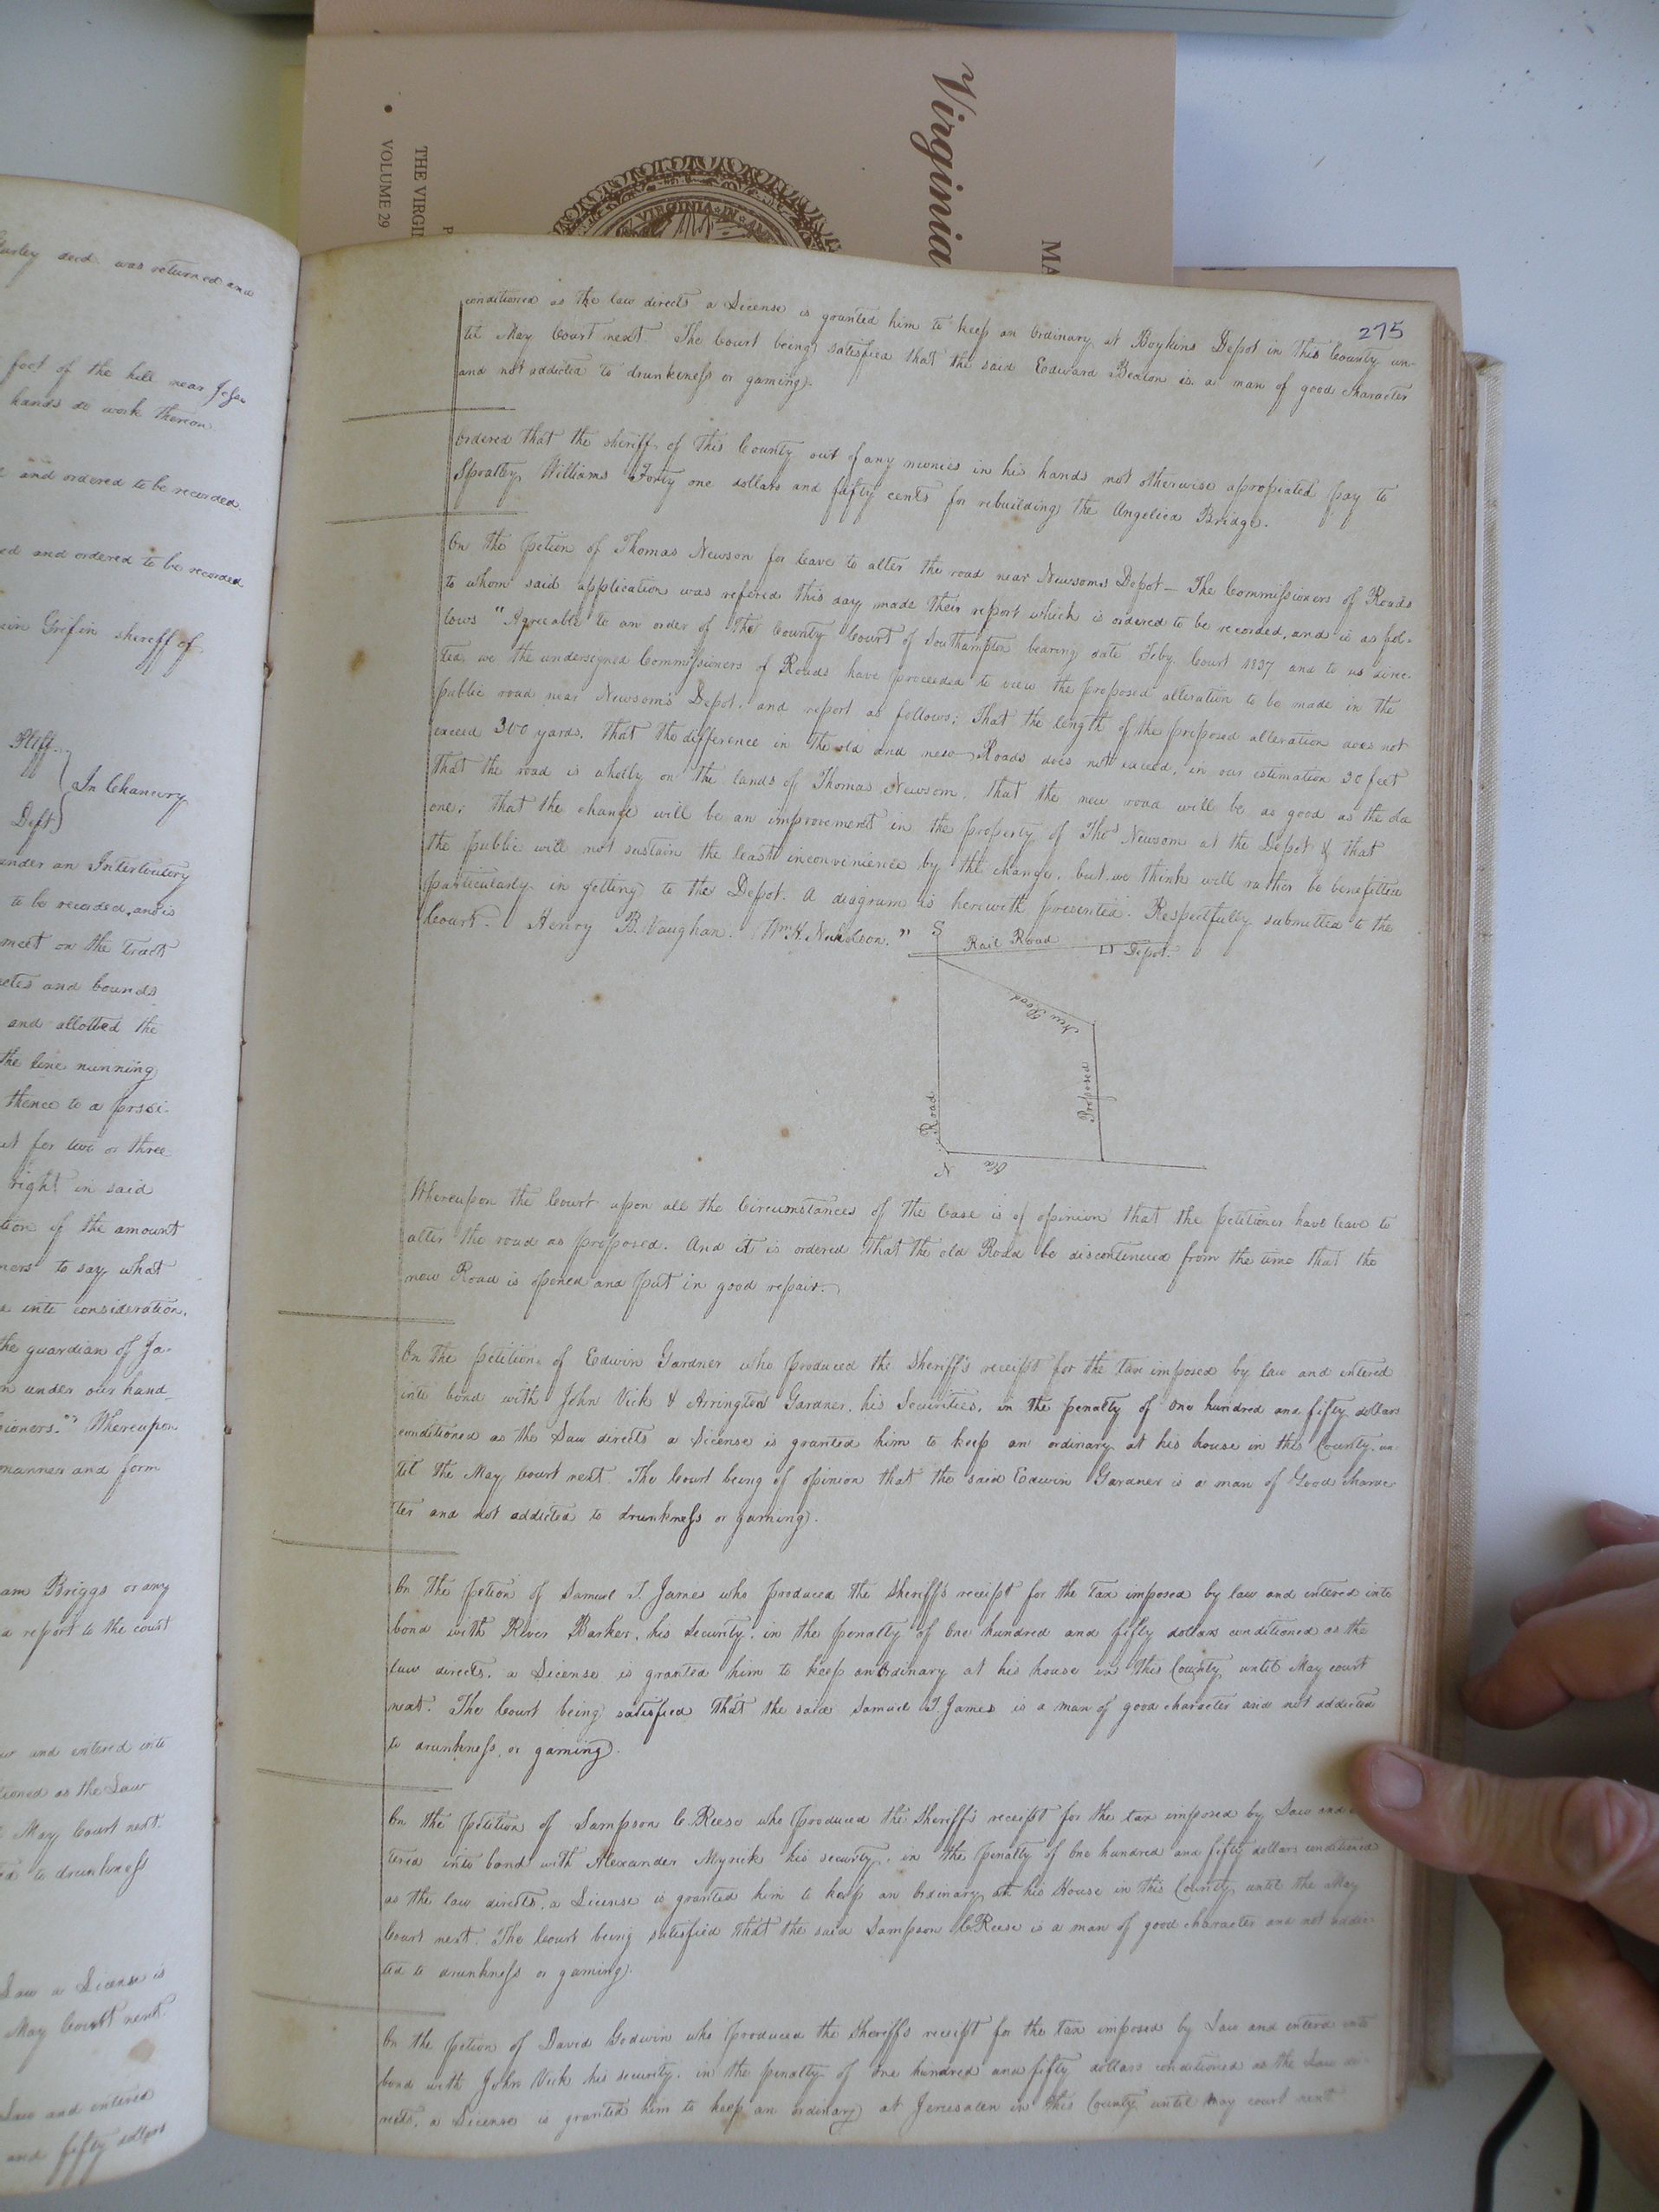 Virginia
MA
THE VIRGI
VOLUME 29
P
VIRGINIA IN
275
conditioned as the law directs a License is granted him to keep an Ordinary at Boykins Depot in this County un-
til May Court next. The Court being satisfied that the said Edward Beaton is a man of good character
and not addicted to drunkeness or gaming.
Ordered that the sheriff of this County out of any monies in his hands not otherwise apropiated pay to
Spratley Williams Forty one dollars and fifty cents for rebuilding the Angelica Bridge.
On the petion of Thomas Newsom for leave to alter the road near Newsoms Depot — The Commissioners of Roads
to whom said application was refered this day made their report which is ordered to be recorded, and is as fol-
lows "Agreeable to an order of the County Court of Southampton bearing date Feby Court 1837 and to us direc-
ted, we the undersigned Commissioners of Roads have proceeded to view the proposed alteration to be made in the
public road near Newsom's Depot, and report as follows; That the length of the proposed alteration does not
exceed 300 yards. That the difference in the old and new Roads does not exceed, in our estimation 30 feet
that the road is wholly on the lands of Thomas Newsom. That the new road will be as good as the old
one; That the change will be an improvement in the property of Thos Newsom at the Depot & that
the public will not sustain the least inconvenience by the change, but we think will rather be benefitted
particularly in getting to the Depot. A diagram is herewith presented. Respectfully submitted to the
Court. Henry B. Vaughan. Wm H. Nicholson."
S
Rail Road
Depot.
New Road
Proposed
Road
N
Old
Whereupon the Court upon all the Circumstances of the Case is of opinion that the petitioner have leave to
alter the road as proposed. And it is ordered that the old Road be discontinued from the time that the
new Road is opened and put in good repair.
On the petition of Edwin Gardner who produced the Sheriff's receipt for the tax imposed by law and entered
into bond with John Vick & Arrington Gardner, his Securities, in the penalty of one hundred and fifty dollars
conditioned as the Law directs a License is granted him to keep an ordinary at his house in this County un
til the May Court next. The Court being of opinion that the said Edwin Gardner is a man of Good charac-
ter and not addicted to drunkness or gaming.
On the petion of Samuel T. James who produced the Sheriff's receipt for the tax imposed by law and entered into
bond with River Barker, his Security, in the penalty of One hundred and fifty dollars conditioned as the
law directs, a License is granted him to keep an Ordinary at his house in this County until May court
next. The Court being satisfied that the said Samuel T. James is a man of good character and not addicted
to drunkness, or gaming.
On the petition of Sampson C. Reese who produced the Sheriff's receipt for the tax imposed by Law and
tered into bond with Alexander Myrick his security, in the penalty of One hundred and fifty dollars conditioned
as the law directs, a License is granted him to keep an Ordinary at his House in this County until the May
Court next. The Court being satisfied that the said Sampson C. Reese is a man of good character and not addic-
ted to drunkness or gaming.
On the petion of David Godwin who produced the Sheriffs receipt for the tax imposed by Law and enterd into
bond with John Vick his security. in the penalty of One hundred and fifty dollars conditioned as the Law di-
rects, a License is granted him to keep an ordinary at Jerusalem in this County until May court next
decd. was returned and
foot of the hill near
hands do work thereon.
and ordered to be recorded.
ed and ordered to be recorded
Grifin sheriff of
Pltff.
In Chancery
Deft
under an Interlocutory
to be recorded, and is
meet on the tract
metes and bounds
and allotted the
the line running
thence to a
for two or three
right in said
tion of the amount
ners to say what
into consideration.
the guardian of Ja-
n under our hand
sioners." Whereupon
manner and form
am Briggs or any
a report to the court
and entered into
tioned as the Law
May Court next.
to drunkness
Law a License is
May Court next.
Law and entered
and fifty dollars